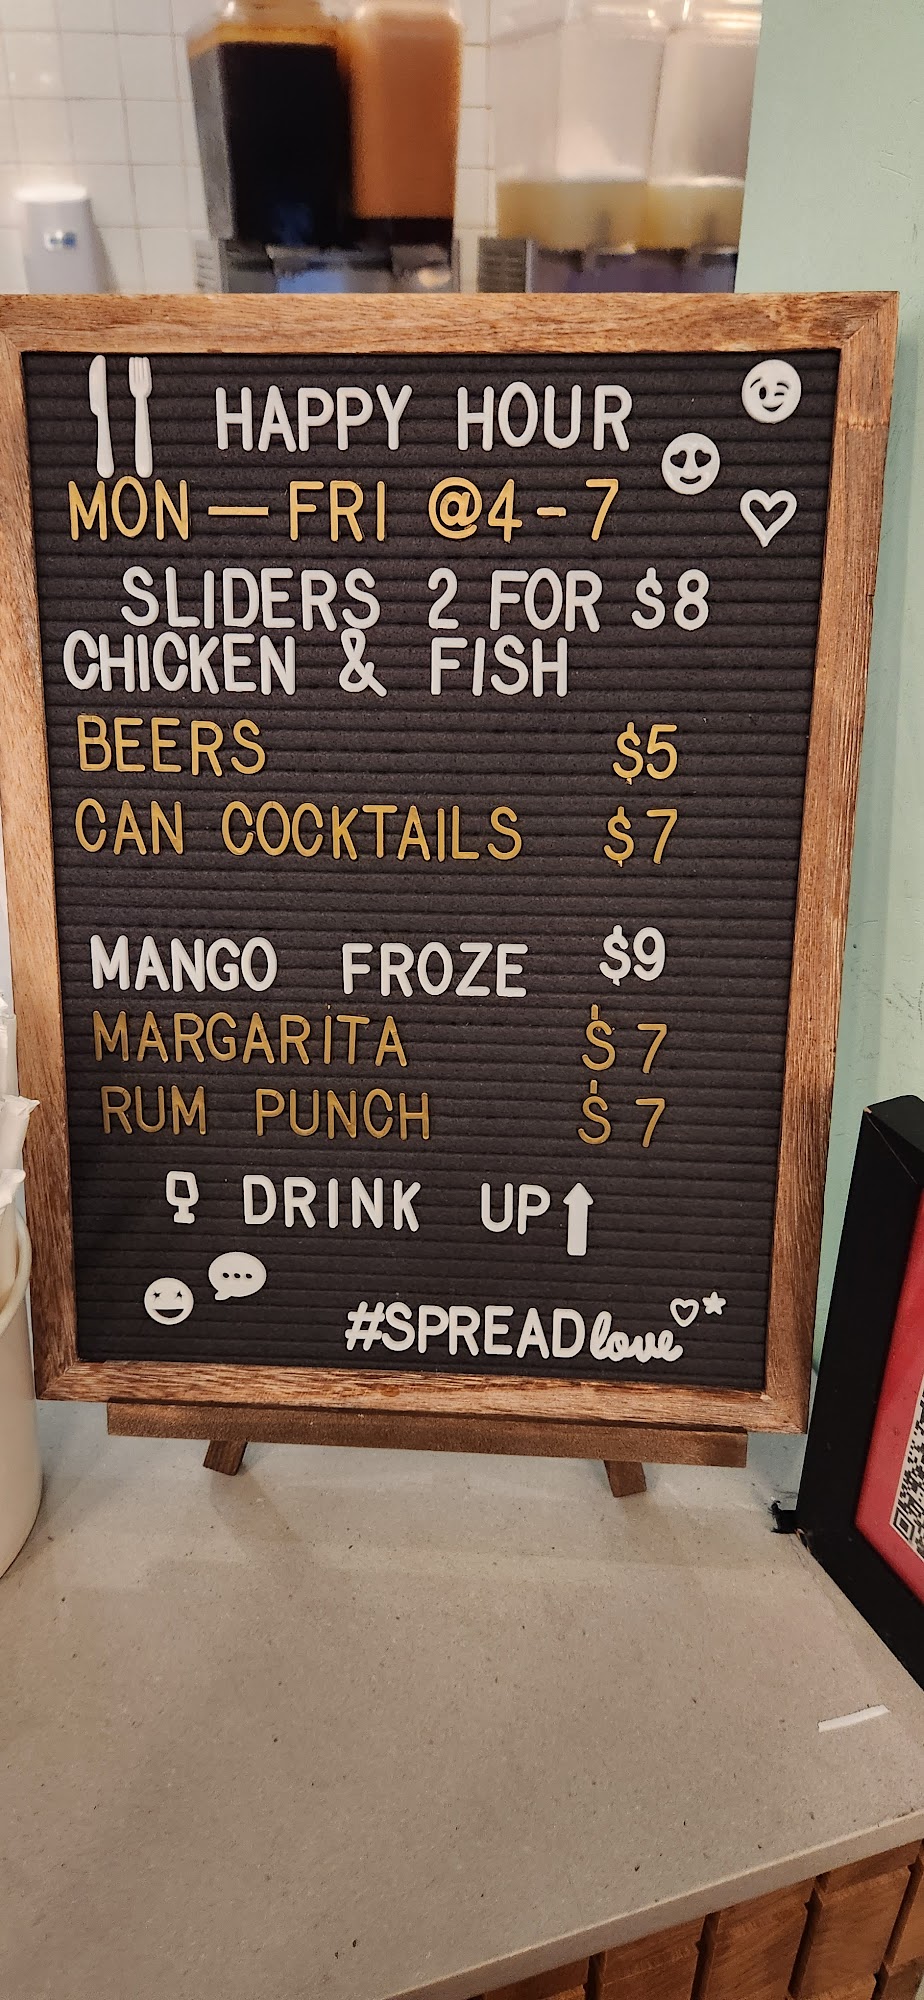 HAPPY HOUR
MON—FRI @4-7
SLIDERS 2 FOR $8
CHICKEN & FISH
BEERS $5
CAN COCKTAILS $7
MANGO FROZE $9
MARGARITA $7
RUM PUNCH $7
DRINK UP
#SPREADlove